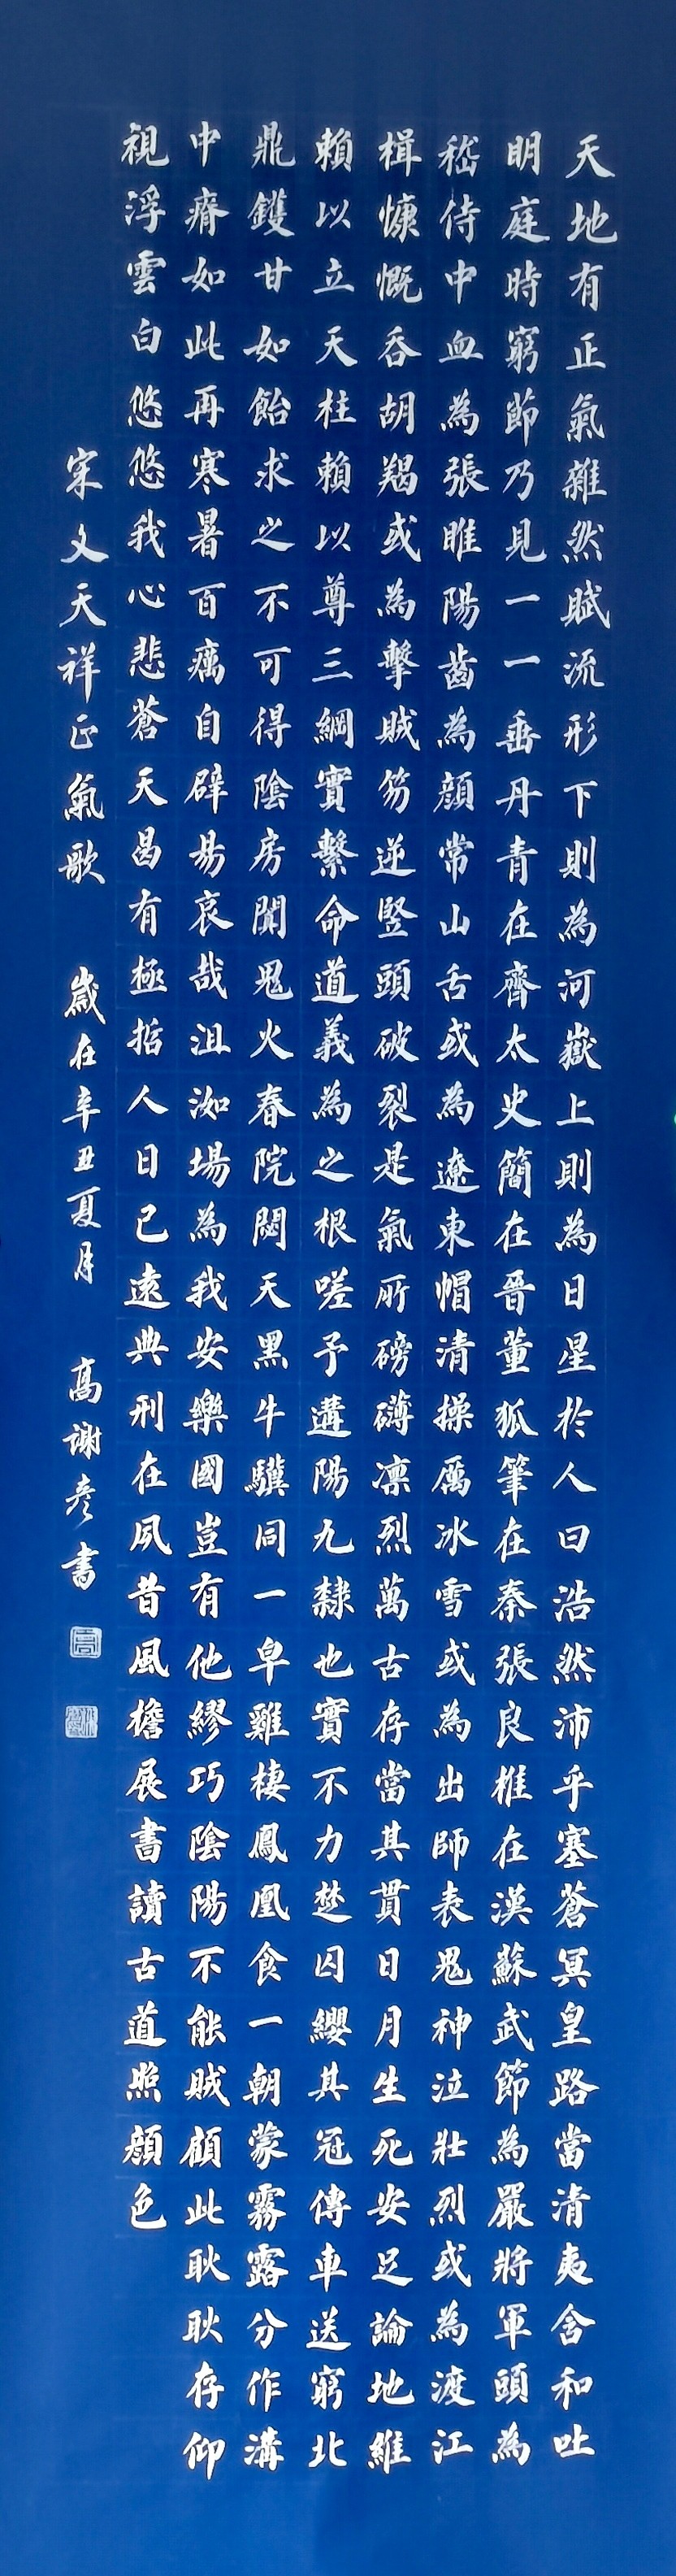 天地有正氣雜然賦流形下則為河嶽上則為日星於人曰浩然沛乎塞蒼冥皇路當清夷含和吐
明庭時窮節乃見一一垂丹青在齊太史簡在晉董狐筆在秦張良椎在漢蘇武節為嚴將軍頭為
嵇侍中血為張睢陽齒為顏常山舌或為遼東帽清操厲冰雪或為出師表鬼神泣壯烈或為渡江
楫慷慨吞胡羯或為擊賊笏逆豎頭破裂是氣所磅礴凜烈萬古存當其貫日月生死安足論地維
賴以立天柱賴以尊三綱實繫命道義為之根嗟予遘陽九隸也實不力楚囚纓其冠傳車送窮北
鼎鑊甘如飴求之不可得陰房闃鬼火春院閟天黑牛驥同一皁雞棲鳳凰食一朝蒙霧露分作溝
中瘠如此再寒暑百癘自辟易哀哉沮洳場為我安樂國豈有他繆巧陰陽不能賊顧此耿耿存仰
視浮雲白悠悠我心悲蒼天曷有極哲人日已遠典刑在夙昔風檐展書讀古道照顏色
宋文天祥正氣歌 歲在辛丑夏月 高謝彥書